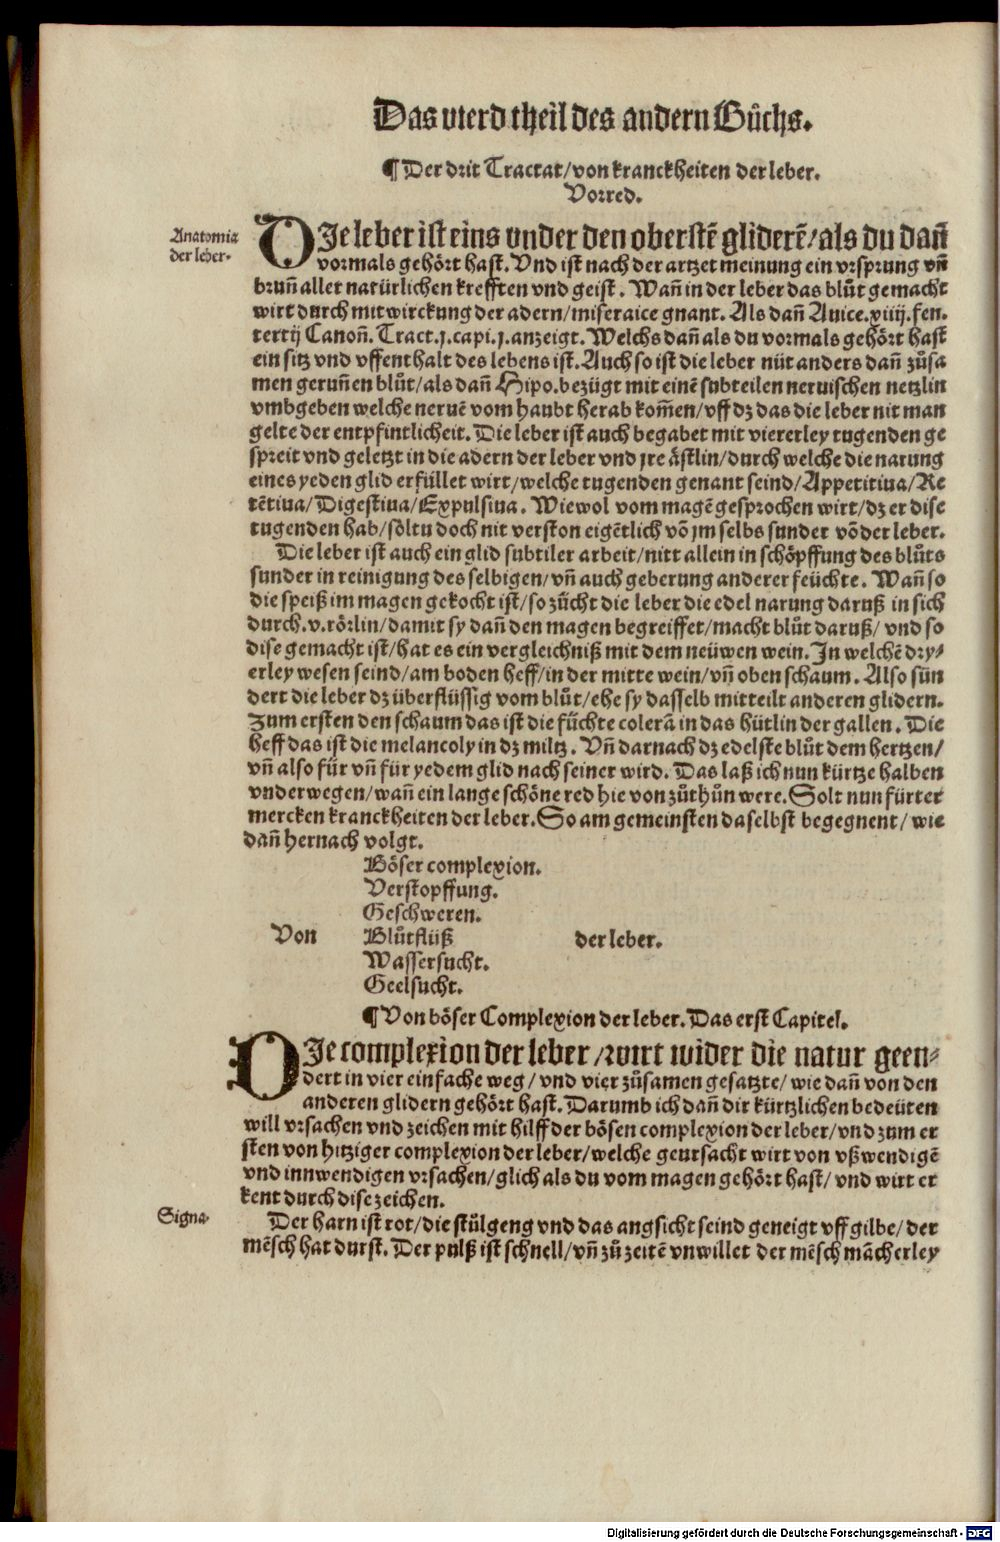 Das vierd theil des andern Bůchs.
¶ Der drit Tractat/von kranckheiten der leber.
Vorred.
Anatomia
der leber.
DJe leber ist eins vnder den oberstē gliderē/als du dañ
vormals gehört hast. Vnd ist nach der artzet meinung ein vrsprung vñ
bruñ aller natürlichen krefften vnd geist. Wañ in der leber das blůt gemacht
wirt durch mitwirckung der adern/miseraice gnant. Als dañ Auice.xiiij.fen.
tertij Canoñ. Tract.j.capi.j.anzeigt. Welchs dañ als du vormals gehört hast
ein sitz vnd vffenthalt des lebens ist. Auch so ist die leber nüt anders dañ zůsa
men geruñen blůt/als dañ Hipo.bezügt mit einē subteilen neruischen netzlin
vmbgeben welche neruē vom haubt herab kom̃en/vff dz das die leber nit man
gelte der entpfintlicheit. Die leber ist auch begabet mit viererley tugenden ge
spreit vnd geletzt in die adern der leber vnd jre ästlin/durch welche die narung
eines yeden glid erfüllet wirt/welche tugenden genant seind/Appetitiua/Re
tētiua/Digestiua/Expulsiua. Wiewol vom magē gesprochen wirt/dz er dise
tugenden hab/söltu doch nit verston eigētlich vō jm selbs sunder vō der leber.
Die leber ist auch ein glid subtiler arbeit/nitt allein in schöpffung des blůts
sunder in reinigung des selbigen/vñ auch geberung anderer feüchte. Wañ so
die speiß im magen gekocht ist/so zücht die leber die edel narung daruß in sich
durch.v.rörlin/damit sy dañ den magen begreiffet/macht blůt daruß/vnd so
dise gemacht ist/hat es ein vergleichniß mit dem neüwen wein. Jn welchē dry/
erley wesen seind/am boden heff/in der mitte wein/vñ oben schaum. Also sün
dert die leber dz überflüssig vom blůt/ehe sy dasselb mitteilt anderen glidern.
Zum ersten den schaum das ist die füchte colerā in das hütlin der gallen. Die
heff das ist die melancoly in dz miltz. Vñ darnach dz edelste blůt dem hertzen/
vñ also für vñ für yedem glid nach seiner wird. Das laß ich nun kürtze halben
vnderwegen/wañ ein lange schöne red hie von zůthůn were. Solt nun fürter
mercken kranckheiten der leber. So am gemeinsten daselbst begegnent/wie
dañ hernach volgt.
Böser complexion.
Verstopffung.
Geschweren.
Von Blůtflüß der leber.
Wassersucht.
Geelsucht.
¶ Von böser Complexion der leber. Das erst Capitel.
DJe complexion der leber/wirt wider die natur geen/
dert in vier einfache weg/vnd vier zůsamen gesatzte/wie dañ von den
anderen glidern gehört hast. Darumb ich dañ dir kürtzlichen bedeüten
will vrsachen vnd zeichen mit hilff der bösen complexion der leber/vnd zum er
sten von hitziger complexion der leber/welche geursacht wirt von vßwendigē
vnd innwendigen vrsachen/glich als du vom magen gehört hast/vnd wirt er
kent durch dise zeichen.
Signa.
Der harn ist rot/die stůlgeng vnd das angsicht seind geneigt vff gilbe/der
mēsch hat durst. Der pulß ist schnell/vñ zů zeitē vnwillet der mēsch mācherley
Digitalisierung gefördert durch die Deutsche Forschungsgemeinschaft - DFG